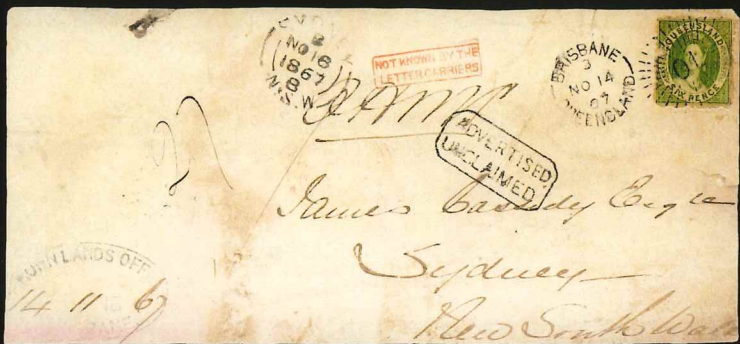 SYDNEY
2
NO 18
1867
8
N.S.W
NOT KNOWN BY THE
LETTER CARRIERS
BRISBANE
3
NO 14
67
QUEENSLAND
QUEENSLAND
SIX PENCE
OHMS
ADVERTISED
UNCLAIMED
James Cassidy Esqre
Sydney
New South Wales
CROWN LANDS OFF
14 11 67